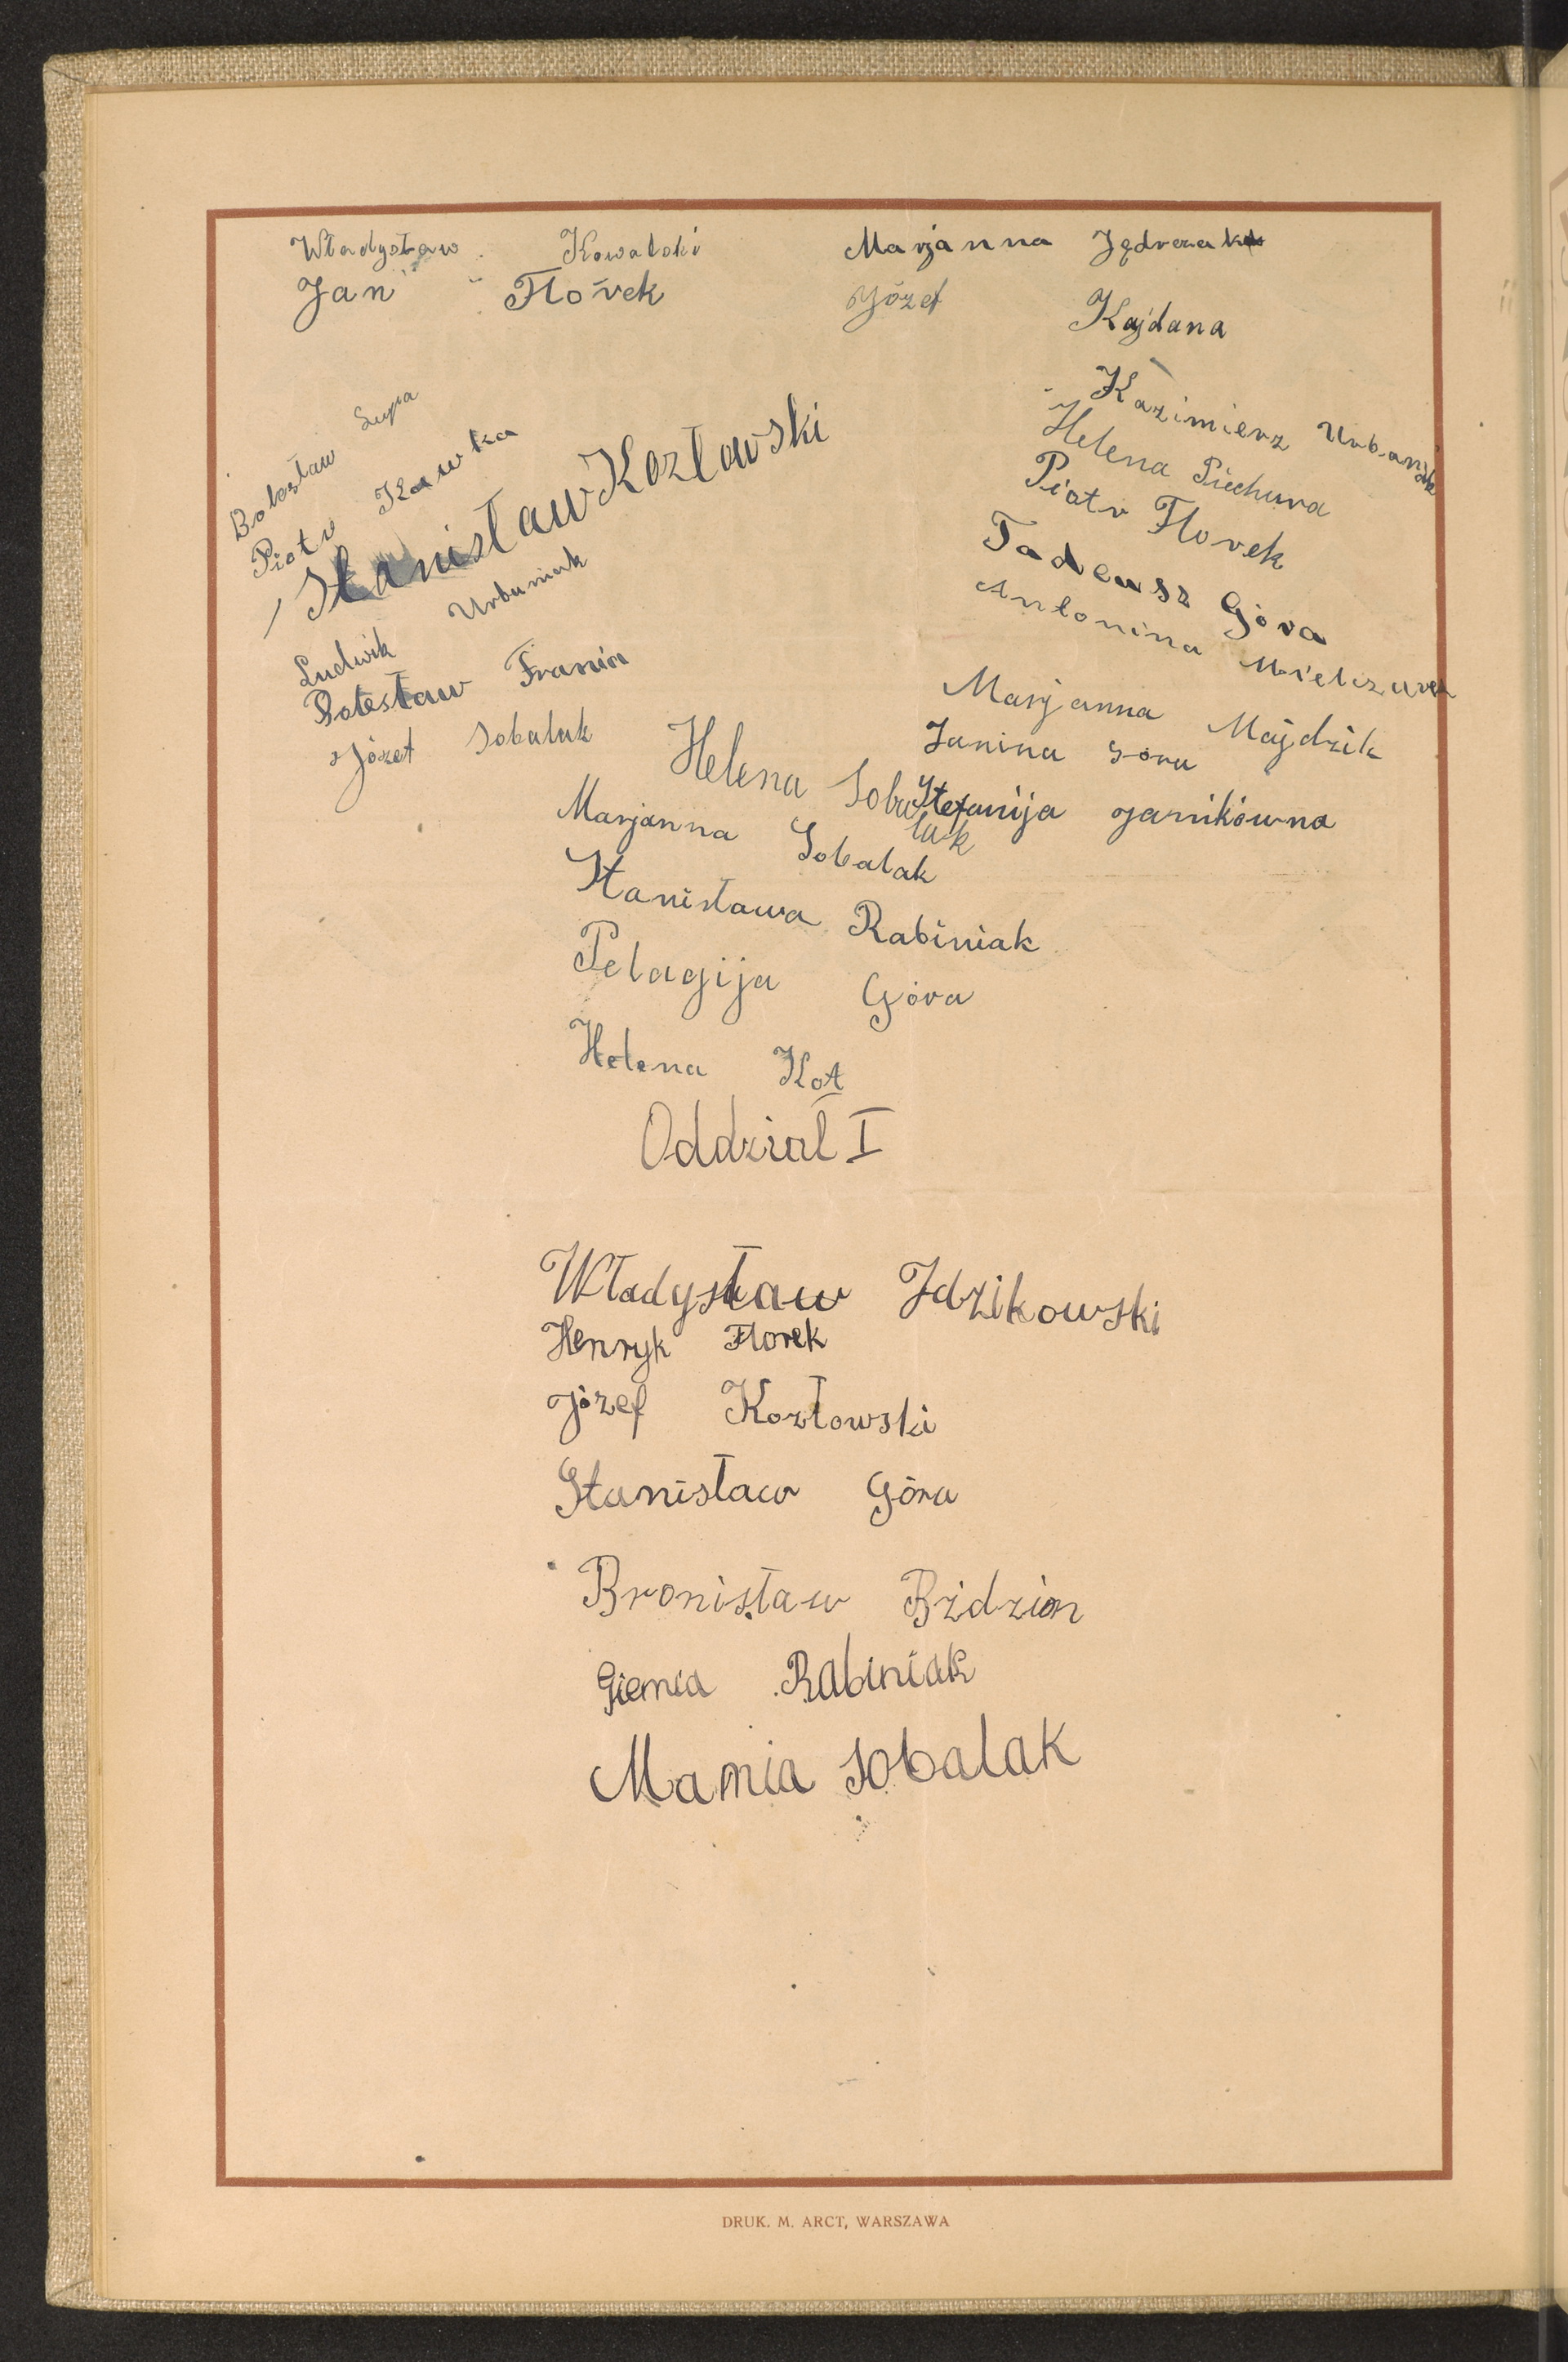 Władysław Kowalski
Jan Florek
Marjanna Jędrzczak
Józef Kajdana
Bolesław Lupa
Piotr Kawka
Stanisław Kozławski
Ludwik Urbaniak
Bolesław Frania
Józef Sobalak
Kazimierz Urbaniak
Helena Piechura
Piotr Florek
Tadeusz Góra
Antonina
Marjanna Majdzik
Janina Góra
Stefanija Jarnikówna
Helena Sobalak
Marjanna Sobalak
Stanisława Rabiniak
Pelagija Góra
Helena Kot
Oddział I
Władysław Idzikowski
Henryk Florek
Józef Kozłowski
Stanisław Góra
Bronisław Bździon
Gienia Rabiniak
Mania Sobalak
DRUK. M. ARCT, WARSZAWA